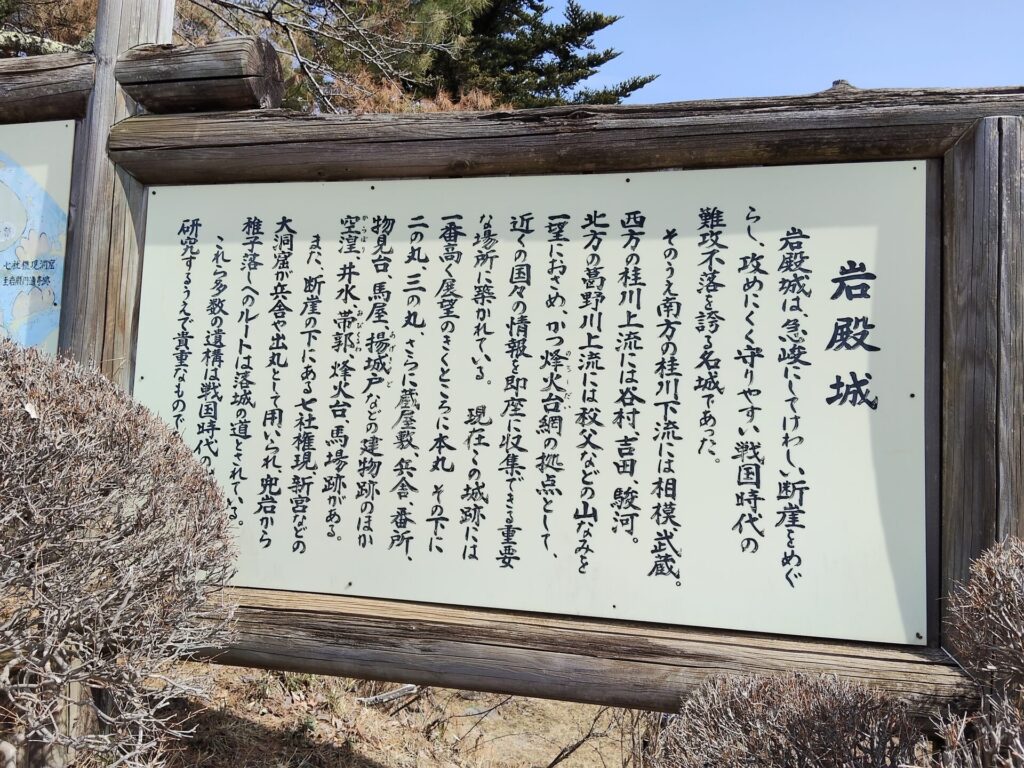 岩殿城
岩殿城は、急峻にしてけわしい断崖をめぐ
らし、攻めにくく守りやすい戦国時代の
難攻不落を誇る名城であった。
そのうえ南方の桂川下流には相模、武蔵。
西方の桂川上流には谷村、吉田、駿河。
北方の葛野川上流には秩父などの山なみを
一望におさめ、かつ烽火台網の拠点として、
のろしだい
近くの国々の情報を即座に収集できる重要
な場所に築かれている。 現在この城跡には
一番高く展望のきくところに本丸 その下に
二の丸、三の丸、さらに蔵屋敷、兵舎、番所、
物見台、馬屋、揚城戸などの建物跡のほか
あげきど
空湟、井水、帯郭、烽火台、馬場跡がある。
からぼり
また、断崖の下にある七社権現、新宮などの
大洞窟が兵舎や出丸として用いられ兜岩から
稚子落しへのルートは落城の道とされている。
これら多数の遺構は戦国時代の
研究するうえで貴重なもので
七社権現洞窟